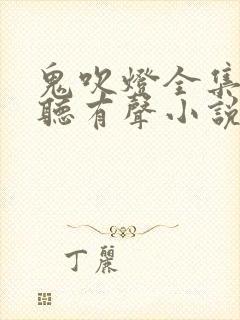 鬼吹燈全集
聽有聲小説
丁麗